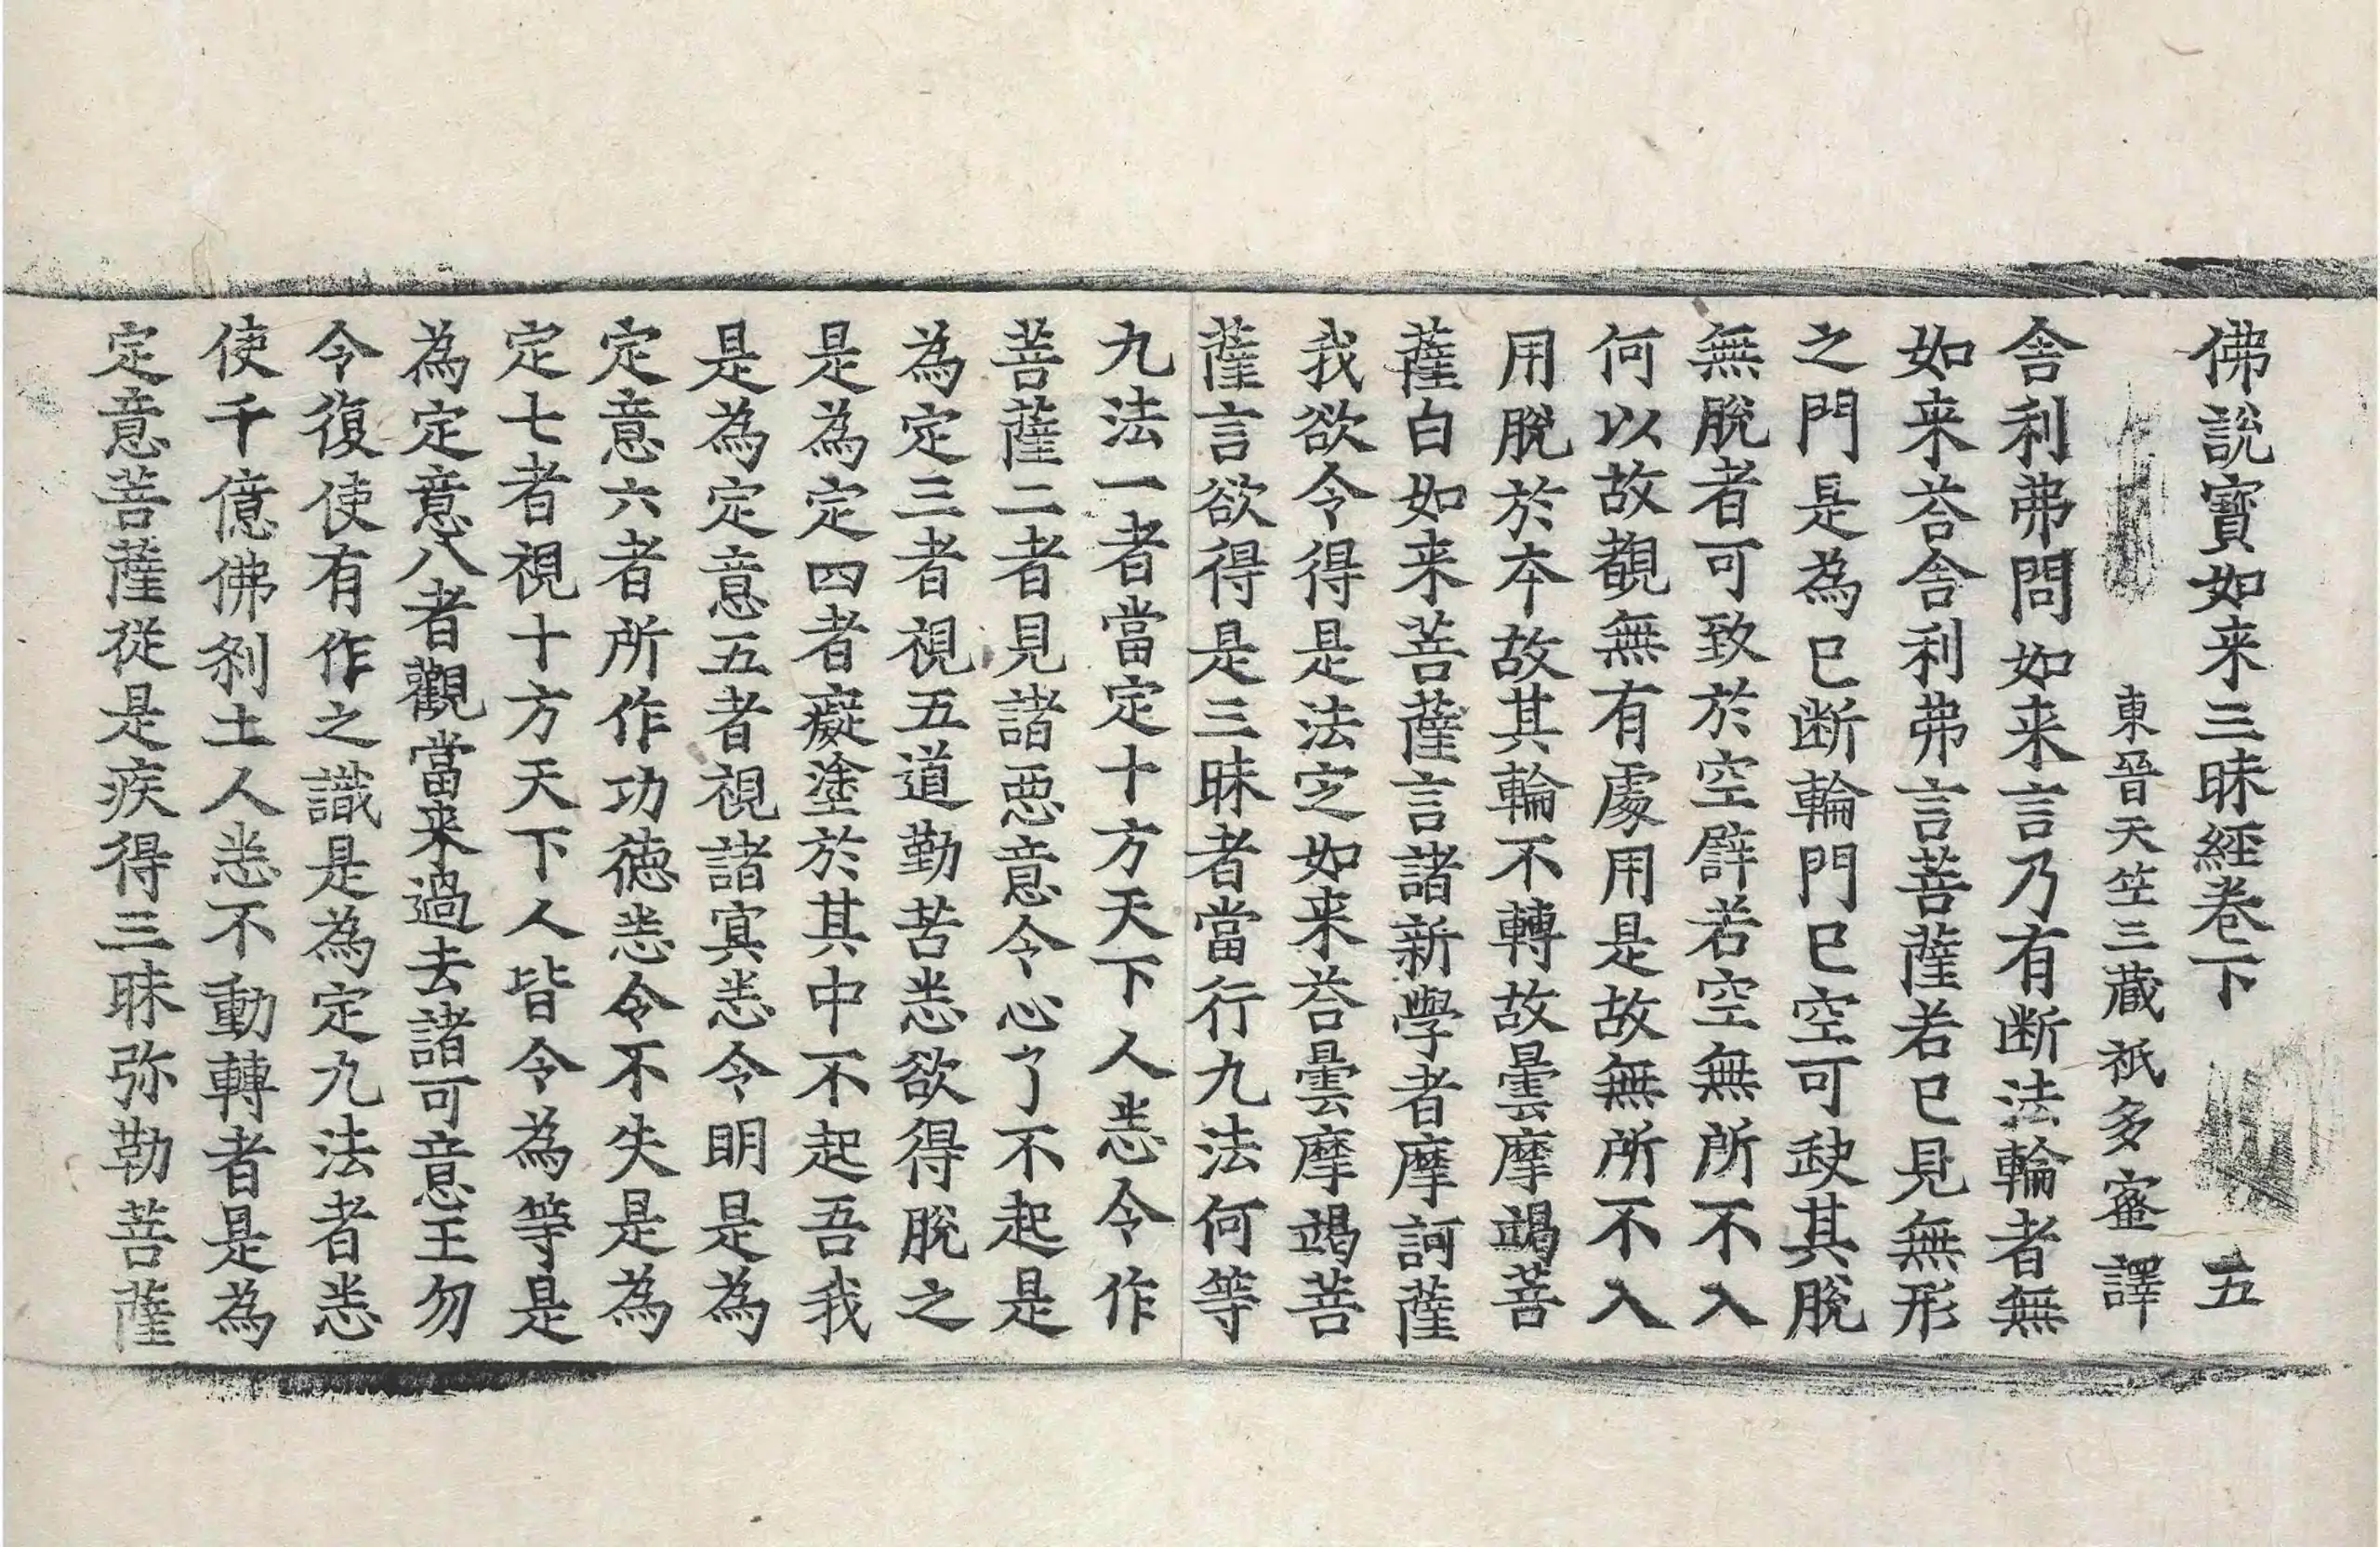 佛説寳如来三昧經卷下 五
東晉天竺三藏祇多蜜譯
舎利弗問如来言乃有断法輪者無
如来荅舎利弗言菩薩若已見無形
之門是為已断輪門已空可䟽其脫
無脫者可致於空辟若空無所不入
何以故覩無有處用是故無所不入
用脫於本故其輪不轉故曇摩竭菩
薩白如来菩薩言諸新學者摩訶薩
我欲令得是法定如来荅曇摩竭菩
薩言欲得是三昧者當行九法何等
九法一者當定十方天下人悉令作
菩薩二者見諸惡意令心了不起是
為定三者視五道勤苦悉欲得脫之
是為定四者癡塗於其中不起吾我
是為定意五者視諸冥悉令明是為
定意六者所作功德悉令不失是為
定七者視十方天下人皆令為等是
為定意八者觀當来過去諸可意王勿
令復使有作之識是為定九法者悉
使千億佛刹土人悉不動轉者是為
定意菩薩從是疾得三昧弥勒菩薩